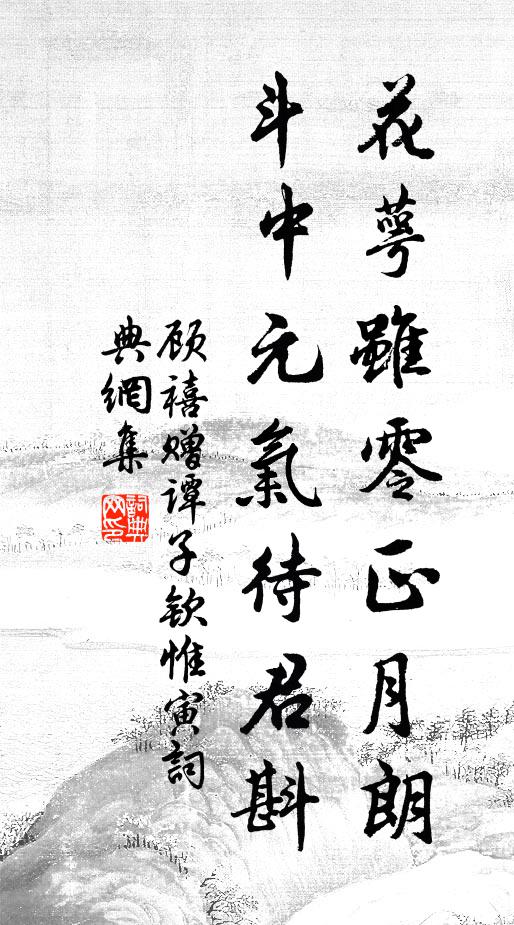 花萼雖零正月朗
斗中元氣待君斟
顾禧赠谭子钦惟寅詞
典網集
詞典网印